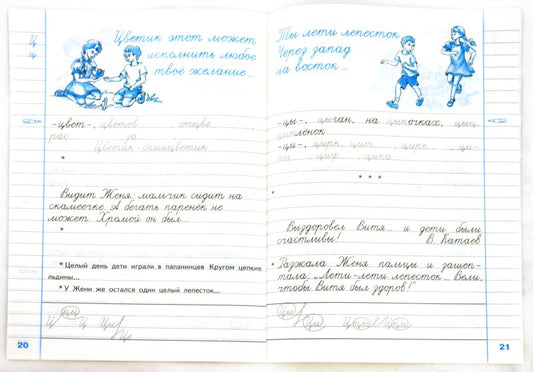 Ц
ц
Цветик этот может
исполнить любое
твоё желание...
-цвет-, цветов
рас за
Цветик-семицветик
*
Видит Женя: мальчик сидит на
скамеечке. А бегать паренёк не
может. Хромой он был...
*
*Целый день дети играли в папанинцев Кругом цепкие
льдины...
*У Жени же остался один целый лепесток...
Ц ци Ц Ци Це
20
Ты лети лепесток,
Через запад
на восток...
-цы-, цыган, на цыпочках, цыц,
цыплёнок
-ци-, цирк, цит цирк ци-
та циф цика
* * *
Выздоровел Витя... и дети были
счастливы! В. Катаев
*Разжала Женя пальцы и зашеп-
тала: „Лети-лети, лепесток... Вели,
чтобы Витя был здоров!"
Ци Ци Цици Цици
21